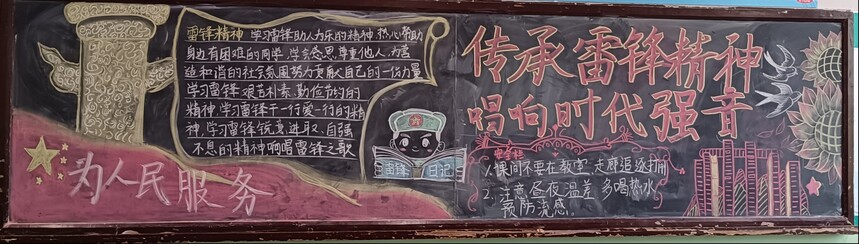 雷锋精神 学习雷锋助人为乐的精神 热心帮助
身边有困难的同学,学会感恩,尊重他人,为营
造和谐的社会氛围努力贡献自己的一份力量
学习雷锋 艰苦朴素.勤俭节约的
精神,学习雷锋干一行爱一行的精
神,学习雷锋锐意进取.自强
不息的精神响唱雷锋之歌
为人民服务
雷锋 日记
传承雷锋精神
唱响时代强音
1.课间不要在教室 走廊追逐打闹
2.注意昼夜温差 多喝热水
预防流感.